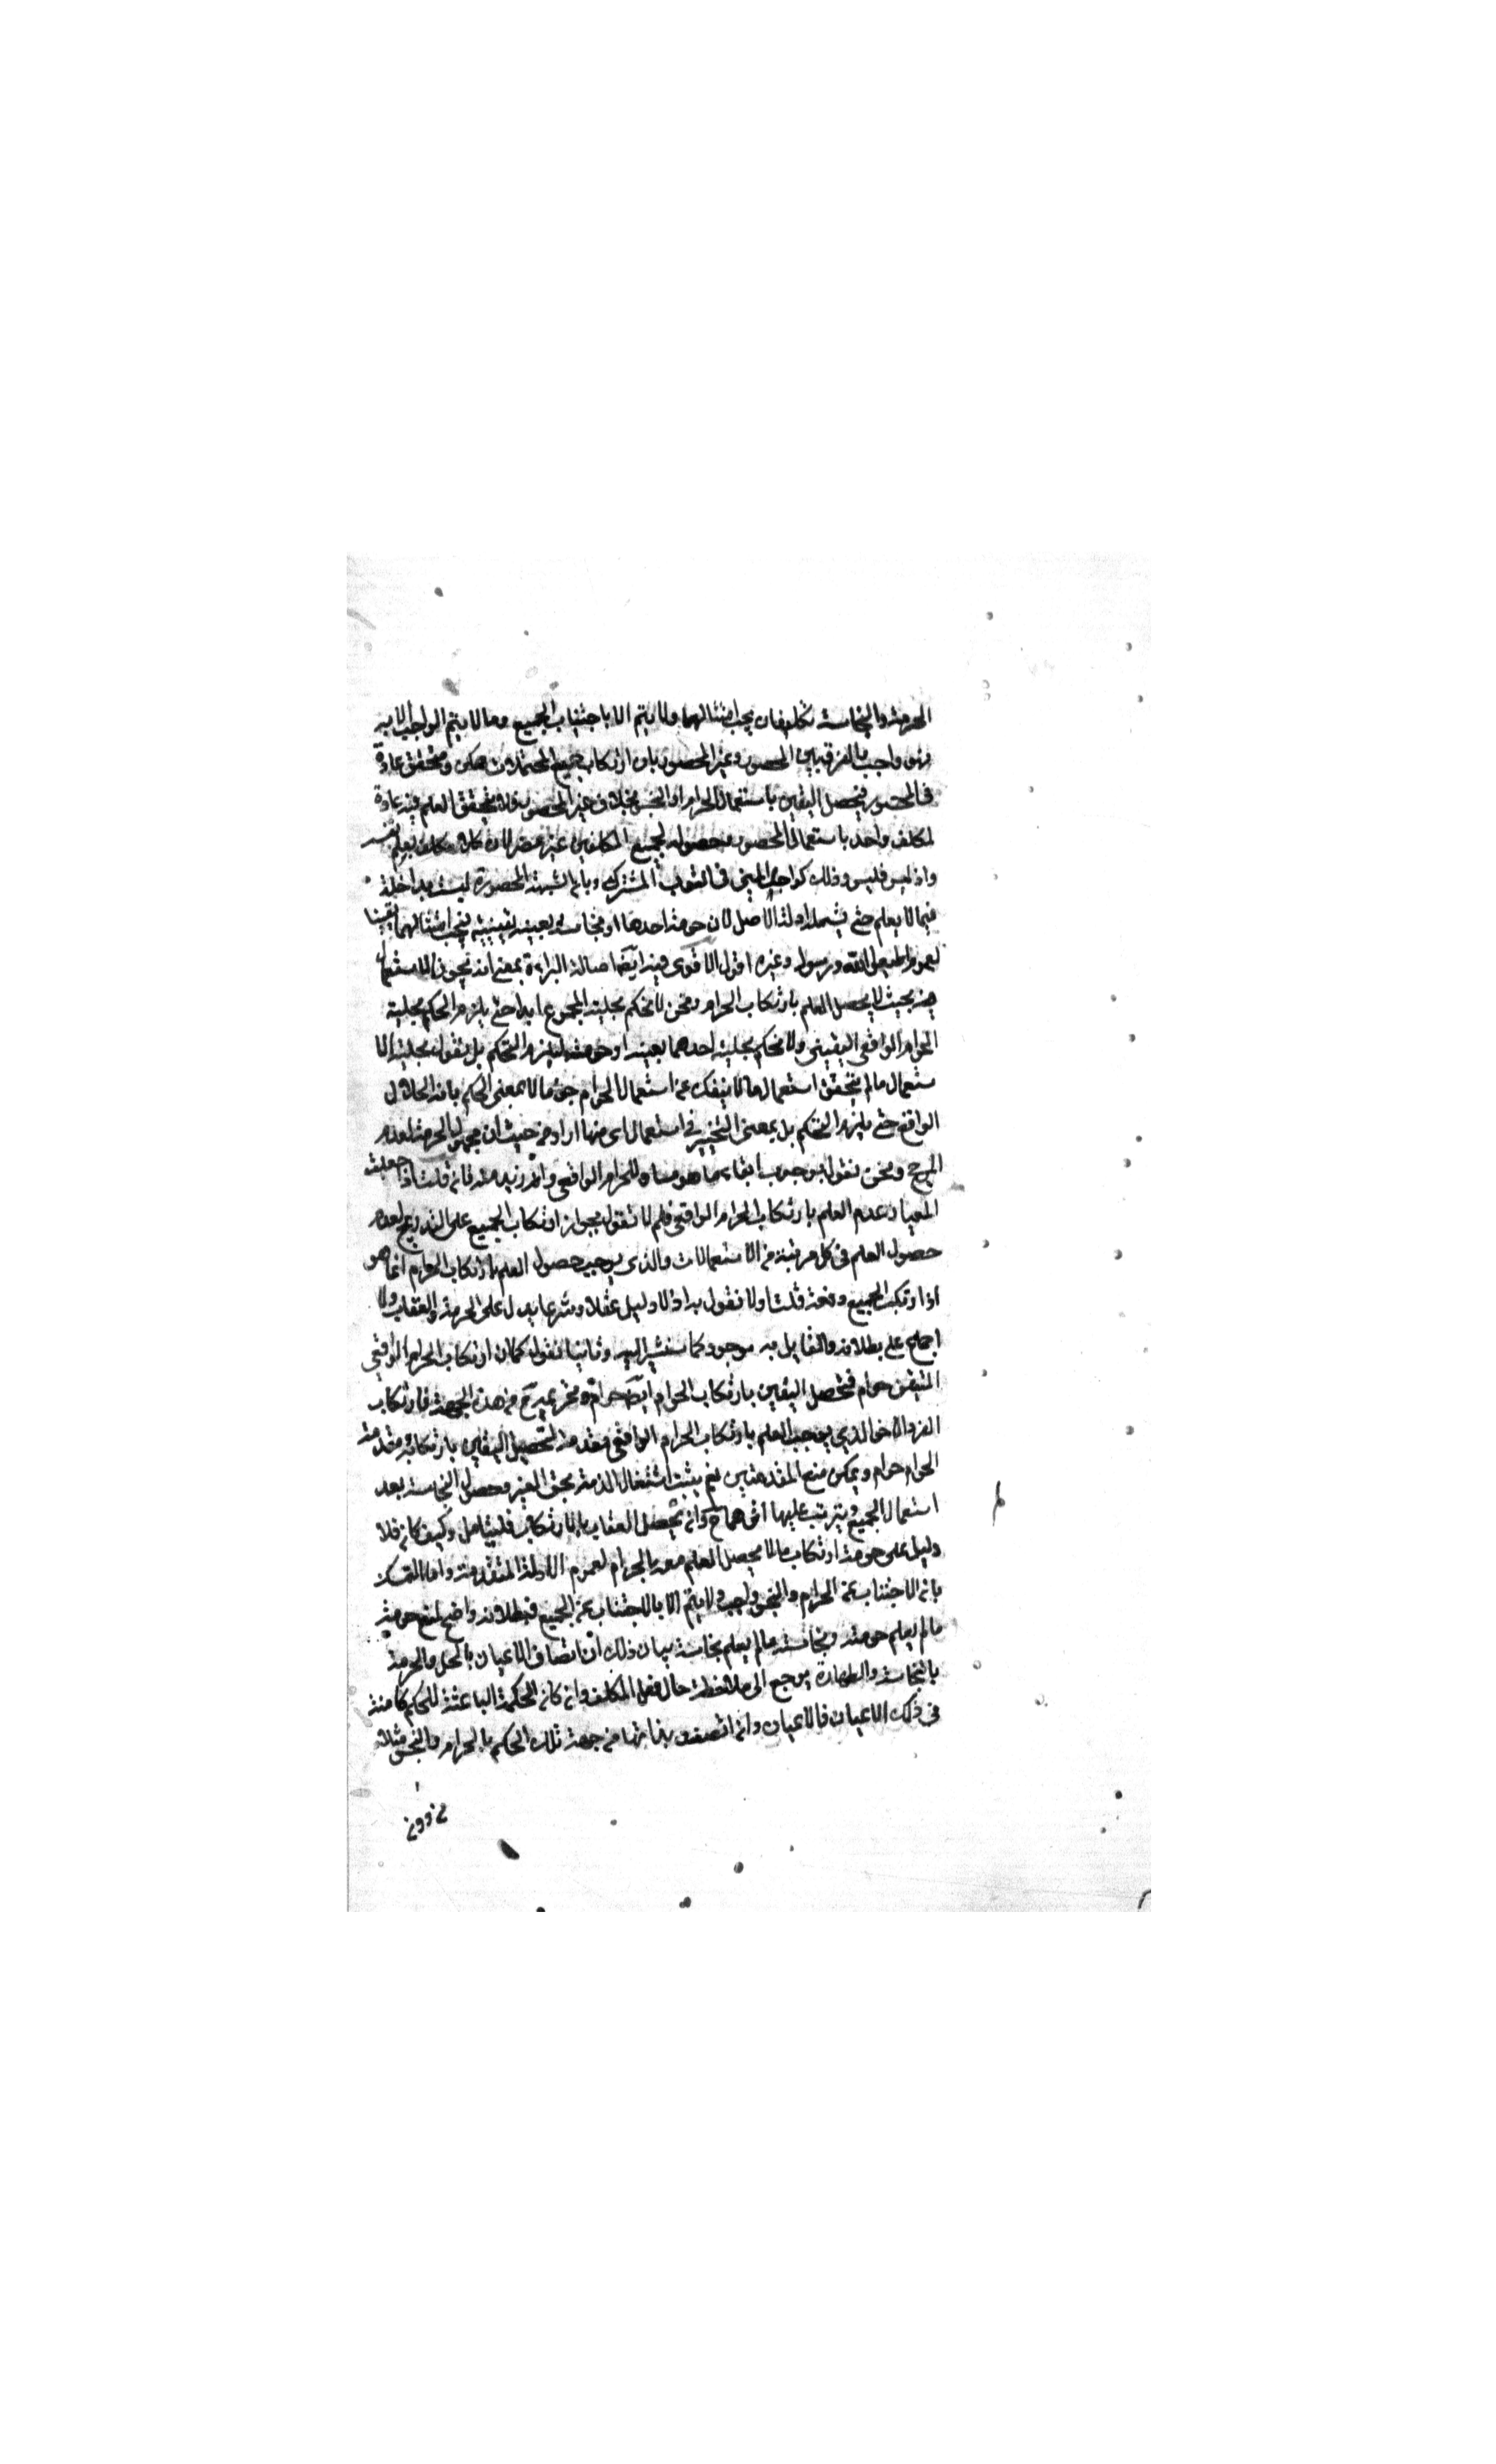 الحرمة والنجاسة تكليفان يجب امتثالهما ولا يتم الا باجتناب الجميع وما لا يتم الواجب الا به
فهو واجب بالفرق بين المحصور وغير المحصور بان ارتكاب جميع المحتملات ممكن ومتحقق عادة
فى المحصور فيحصل اليقين باستعمال الحرام او النجس بخلاف غير المحصور فلا يتحقق العلم فيه عادة
لمكلف واحد باستعمال المحصور وحصوله لجميع المكلفين غير مضر لان كلا مكلف بعلم نفسه
واذ ليس فليس وذلك كواجدى المنى فى الثوب المشترك وبان الشبهة المحصورة ليست بداخلة
فيما لا يعلم حتى يشمله ادلة الاصل لان حرمة احدها او نجاسته بعينه يقينية فيجب امتثالهما يقينا
لعموم اطيعوا الله ورسوله وغيره اقول الاقوى فيه ايضا اصالة البراءة بمعنى انه يجوز الاستعمال
منه بحيث لا يحصل العلم بارتكاب الحرام ونحن لا نحكم بحلية المجموع ابدا حتى يلزم الحكم بحلية
الحرام الواقعى اليقينى ولا نحكم بحلية احدهما بعينه او حرمته ليلزم التحكم بل نقول بحلية الا
ستعمال ما لم يتحقق استعمال ما لا ينفك عن استعمال الحرام جزما لا بمعنى الحكم بانه الحلال
الواقعى حتى يلزم التحكم بل بمعنى التخيير فى استعمال اى منها اراد من حيث ان مجهول الحرمة لعدم
المرجح ونحن نقول بوجوب ابقاء ما هو مساو للحرام الواقعى او ازيد منه فان قلت اذا جعلت
المعيار عدم العلم بارتكاب الحرام الواقعى فلم لا تقول بجواز ارتكاب الجميع على التدريج لعدم
حصول العلم فى كل مرتبة من الاستعمالات والذى يوجب حصول العلم بارتكاب الحرام انما هو
اذا ارتكب الجميع دفعة قلت اولا نقول به اذ لا دليل عقلا وشرعا يدل على الحرمة والعقاب ولا
اجماع على بطلانه والقايل به موجود كما سنشير اليه وثانيا نقول كما ان ارتكاب الحرام الواقعى
المتيقن حرام فتحصيل اليقين بارتكاب الحرام ايضا حرام من هذه الجهة فارتكاب
الفرد الاخر الذى يوجب العلم بارتكاب الحرام الواقعى مقدمة لتحصيل اليقين بارتكابه ومقدمة
الحرام حرام ويمكن منع المقدمتين نعم يثبت اشتغال الذمة بحق الغير وحصول النجاسة بعد
استعمال الجميع ويترتب عليها اثرهما ح وان لم يحصل العقاب بالارتكاب فليتامل وكيف كان فلا
دليل على حرمة ارتكاب ما لا يحصل العلم معه بالحرام لعموم الادلة المتقدمة واما التمسك
بان الاجتناب عن الحرام والنجس واجب ولا يتم الا بالاجتناب عن الجميع فبطلانه واضح لمنع حرمة
ما لم يعلم حرمته ونجاسة ما لم يعلم نجاسته بيان ذلك ان اتصاف الاعيان بالحل والحرمة
بالنجاسة والطهارة يرجع الى ملاحظة حال فعل المكلف وان كان الحكمة الباعثة للحكم كامنة
فى ذلك الاعيان فالاعيان وان اتصف بذاتها من جهة تلك الحكم بالحرام والنجس مثلا